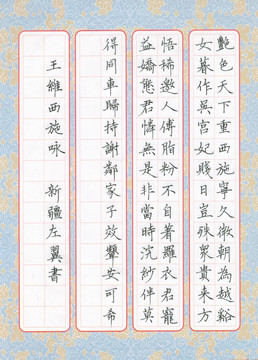 艷色天下重西施寧久微朝為越谿
女暮作吳宮妃賤日豈殊衆貴来方
悟稀邀人傅脂粉不自著羅衣君寵
益嬌態君憐無是非當時浣紗伴莫
得同車歸持謝鄰家子效顰安可希
王維西施咏 新疆左翼書